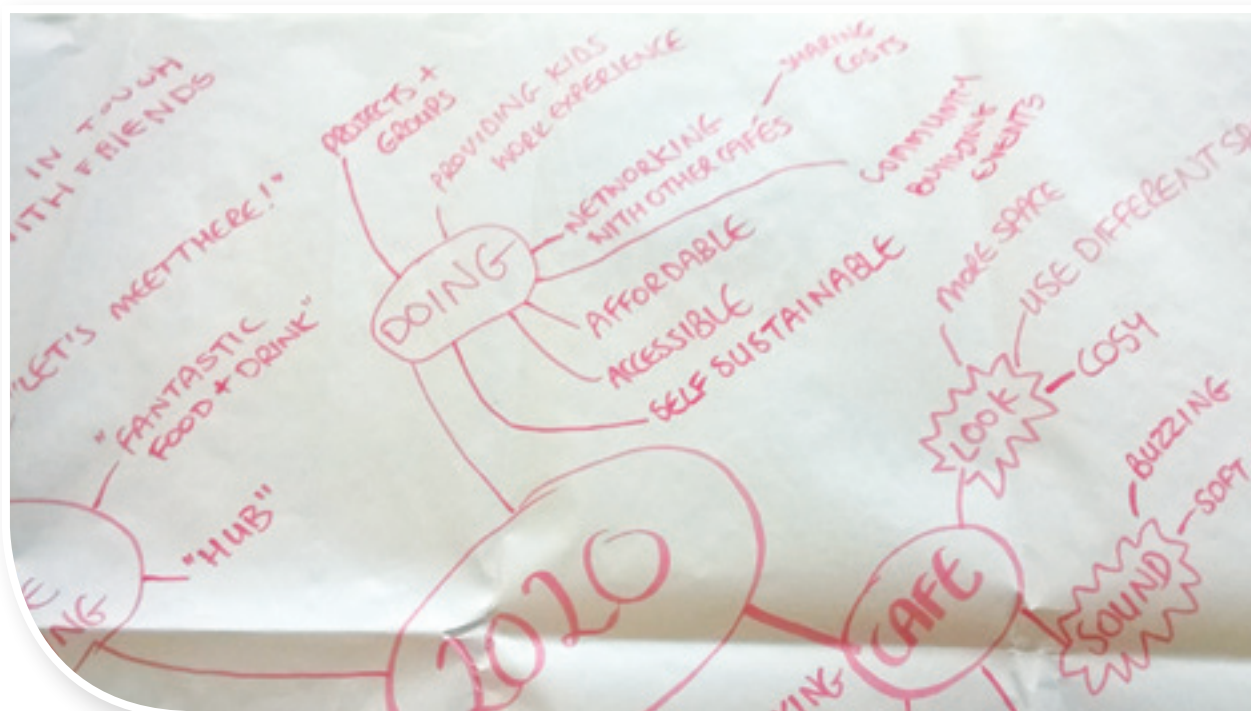 IN TOUCH
WITH FRIENDS
"LET'S MEET THERE!"
"FANTASTIC
FOOD + DRINK"
"HUB"
NG
PROJECTS +
GROUPS
PROVIDING KIDS
WORK EXPERIENCE
NETWORKING
WITH OTHER CAFÉS
SHARING
COSTS
COMMUNITY
BUILDING
EVENTS
DOING
AFFORDABLE
ACCESSIBLE
SELF SUSTAINABLE
2020
MORE SPACE
USE DIFFERENT
COSY
LOOK
BUZZING
SOFT
SOUND
CAFE
KING